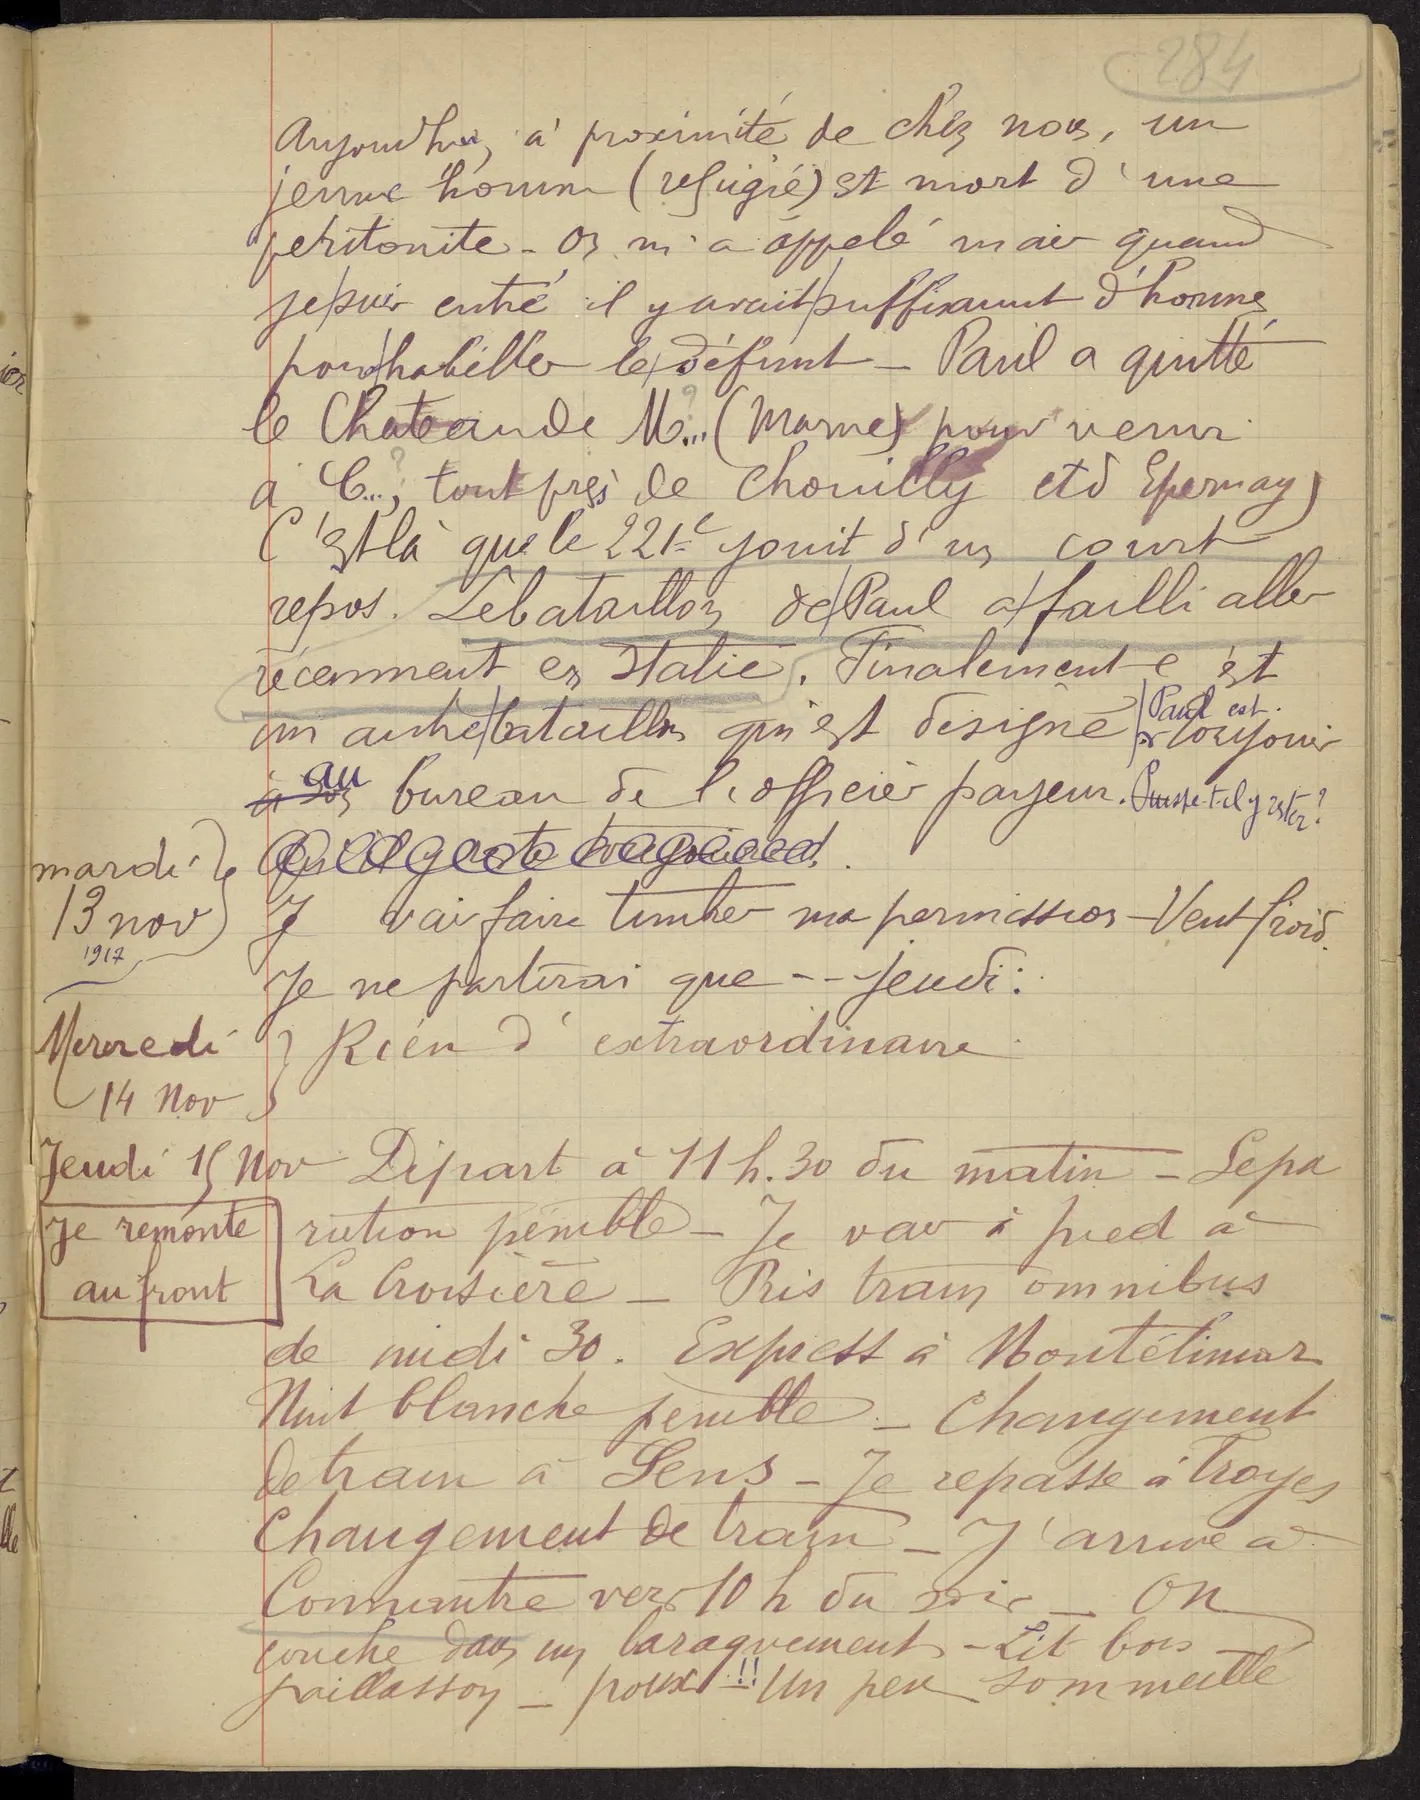 284
Aujourd'hui, à proximité de chez nous, un
jeune homme (refugié) est mort d'une
péritonite - On m'a appelé mais quand
je suis entré il y avait suffisament d'hommes
pour habiller le défunt - Paul a quitté
le Chateau de M... (Marne) pour venir
à C..., tout près de Chouilly et d'Epernay,
C'est là que le 221e jouit d'un court
repos. Le bataillon de Paul a failli aller
récemment en Italie. Finalement c'est
un autre bataillon qui est désigné Paul est
toujours
au bureau de l'officier payeur. Puisse-t-il y rester?
mardi
13 nov
1917
Je vais faire timbrer ma permission - Vent froid.
Je ne partirai que -- jeudi:
Mercredi
14 Nov
Rien d'extraordinaire
Jeudi 15 Nov Départ à 11 h. 30 du matin - Sépa
Je remonte
au front
ration pénible - Je vais à pied à
La Croisière - Pris train omnibus
de midi 30. Express à Montélimar
Nuit blanche pénible - Changement
de train à Sens - Je repasse à Troyes
Changement de train - J'arrive à
Connantre vers 10 h du soir - On
couche dans un baraquement - Lit bois
paillasson - poux!! Un peu sommeillé